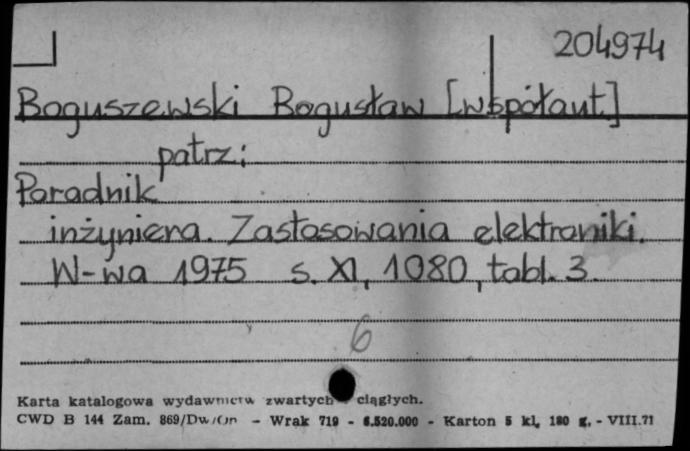 204974
Boguszewski Bogusław [współaut.]
patrz:
Poradnik
inżyniera. Zastosowania elektroniki.
W-wa 1975 s. XI, 1080, tabl. 3.
6
Karta katalogowa wydawnictw zwartych ciągłych.
CWD B 144 Zam. 869/Dw/On - Wrak 719 - 6.520.000 - Karton 5 kl. 180 g. - VIII.71